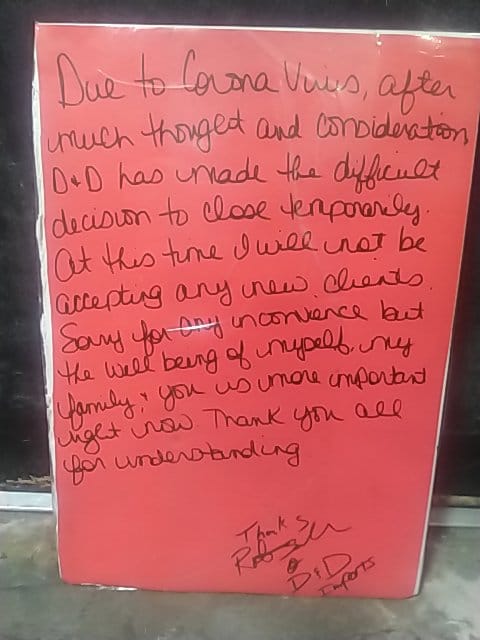 Due to Corona Virus, after
much thought and consideration
D&D has made the difficult
decision to close temporarily.
At this time I will not be
accepting any new clients.
Sorry for any inconvence but
the well being of myself, my
family, & you is more important
right now. Thank you all
for understanding
Thanks
@
D&D
Imports